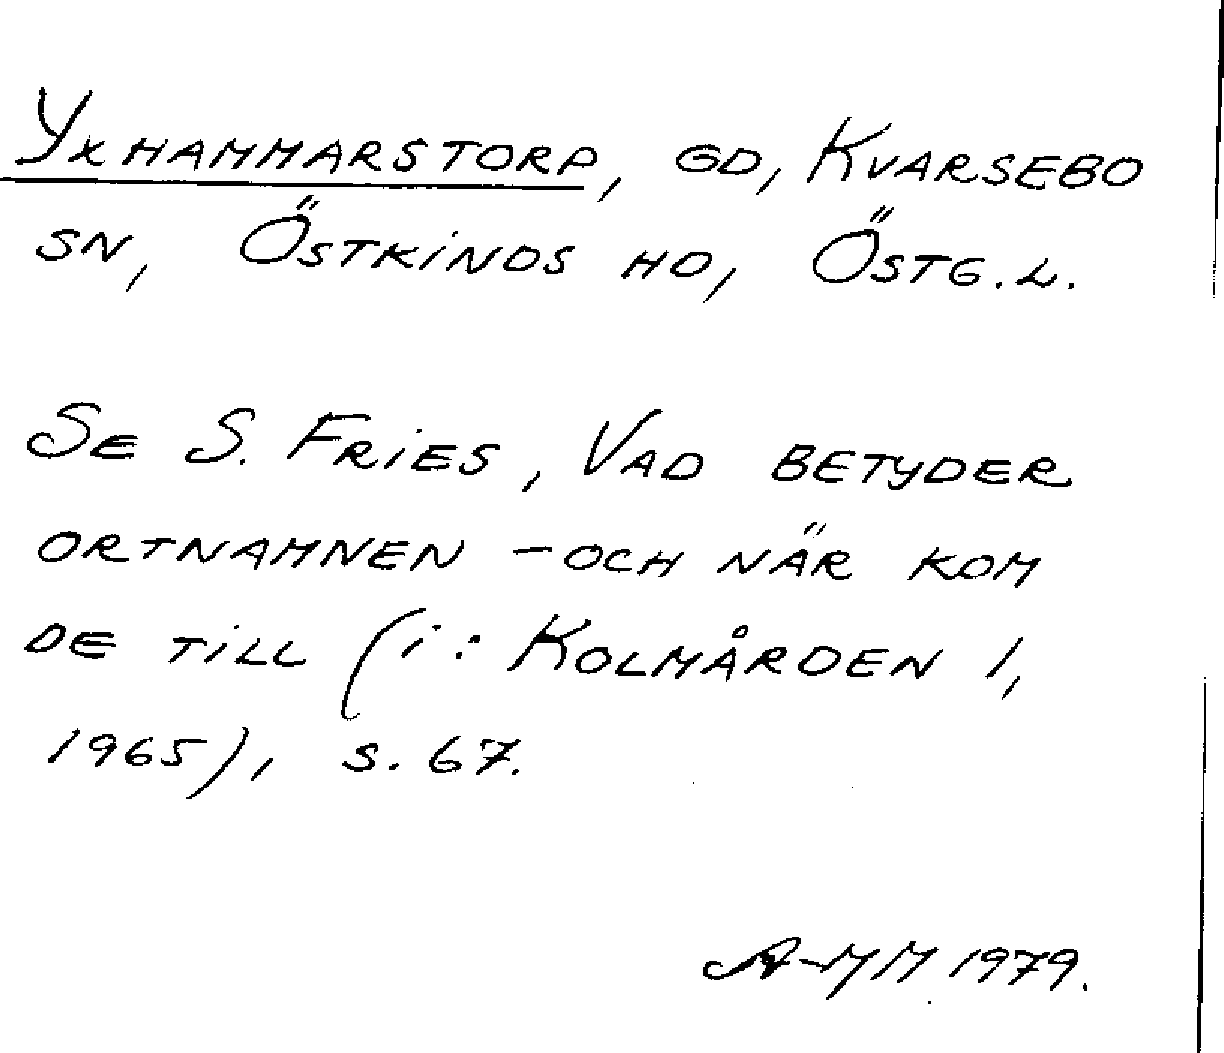 Yxhammarstorp, gd, Kvarsebo
sn, Östkinds hd, Östg.l.
Se S. Fries, Vad betyder
ortnamnen – och när kom
de till (i: Kolmården 1,
1965), s. 67.
A-MM 1979.